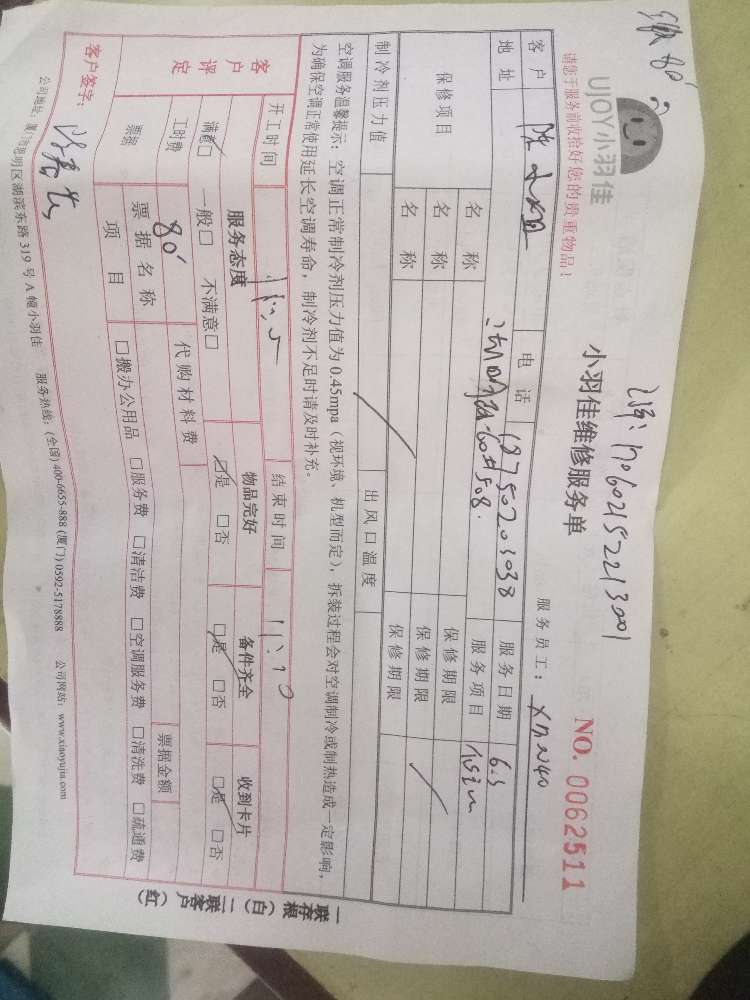 收80
UJOY小羽佳
请您于服务前收拾好您的贵重物品！
小羽佳维修服务单
170602152213001
NO. 0062511
服务员工： XMN40
客户 电话 18750203038 服务日期 6.3
地址 服务项目
保修项目 名称 保修期限
名称 保修期限
名称 保修期限
制冷剂压力值 出风口温度
空调服务温馨提示：空调正常制冷剂压力值为 0.45mpa（视环境、机型而定），拆装过程会对空调制冷或制热造成一定影响，
为确保空调正常使用延长空调寿命，制冷剂不足时请及时补充。
开工时间 结束时间
客户评定 服务态度 物品完好 备件齐全 收到卡片
满意☑ 一般□ 不满意□ ☑是 □否 ☑是 □否 ☑是 □否
工时费 80 代购材料费 票据金额
票据 票据名称
项目 □搬办公用品 □服务费 □清洁费 □空调服务费 □清洗费 □疏通费
客户签字：
公司地址：厦门市思明区湖滨东路 319 号 A 幢小羽佳 服务热线：(全国) 400-6655-888 (厦门) 0592-5178888 公司网站：www.xiaoyujia.com
一联存根（白）二联客户（红）